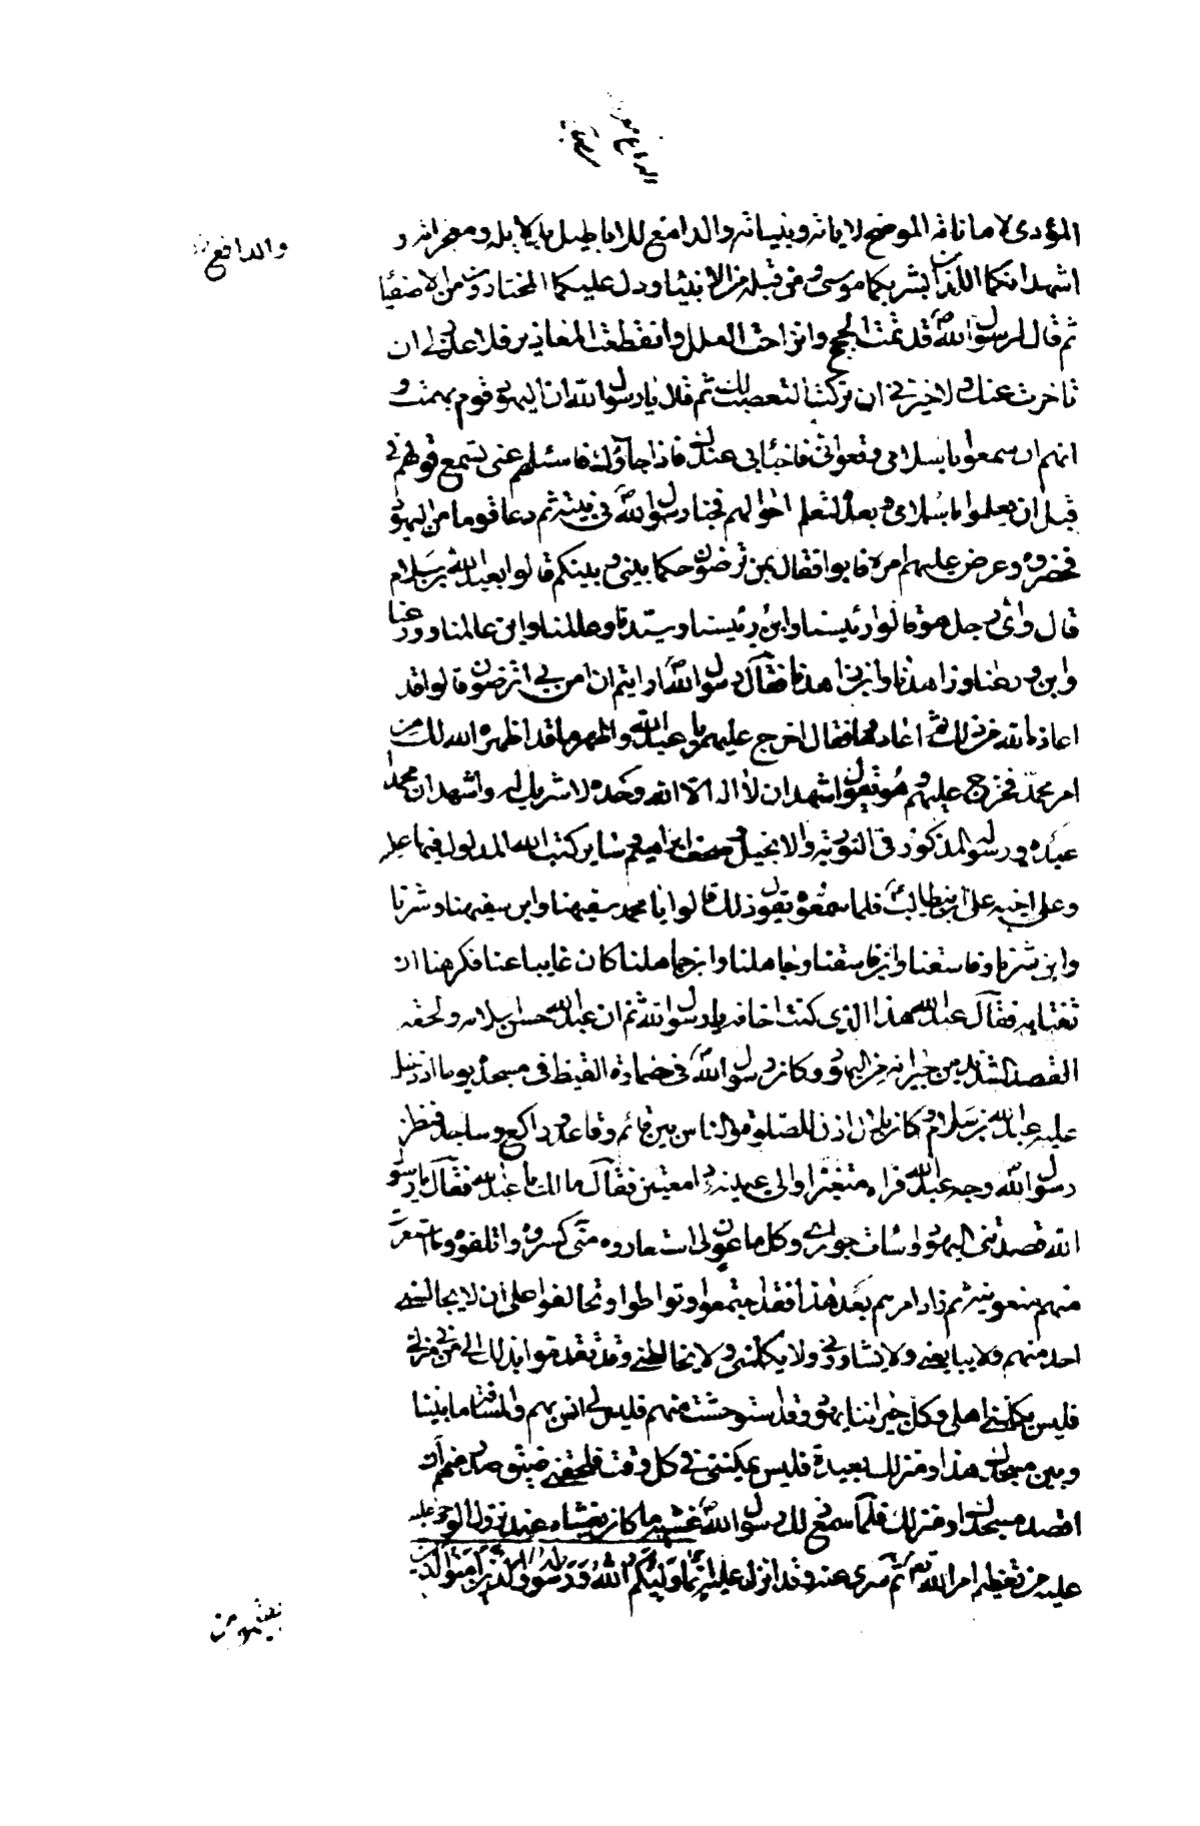 المؤدى لاماناته الموضح لاياته وبيناته والدافع للاباطيل بدلايله ومعجزاته و
والدافع
اشهد انكما اللذان بشر بكما موسى ومن قبله من الانبياء ودل عليكما المختارون من الاصفياء
ثم قال لرسول الله ص قد تمت الحجج وانزاحت العلل وانقطعت المعاذير فلا عذر لى ان
تاخرت عنك ولا خير فى ان تركت التعصب لك ثم قال يا رسول الله ان اليهود قوم بهت و
انهم ان سمعوا باسلامى وقعوا فى فاخبأنى عندك فاذا جاؤك فاسئلهم عنى تسمع قولهم فى
قبل ان يعلموا باسلامى وبعده لتعلم احوالهم فخباه رسول الله ص فى بيته ثم دعا قوما من اليهود
فحضروه وعرض عليهم امره فابوا فقال بمن ترضون حكما بينى وبينكم قالوا بعبد الله بن سلام
قال واى رجل هو قالوا رئيسنا وابن رئيسنا وسيدنا وعالمنا وابن عالمنا وورعنا
وابن ورعنا وزاهدنا وابن زاهدنا فقال رسول الله ص ارايتم ان امن بى اتؤمنون قالوا قد
اعاذه الله من ذلك ثم اعادها فقال اخرج عليهم يا عبد الله واظهر ما قد اظهره الله لك من
امر محمد فخرج عليهم وهو يقول اشهد ان لا اله الا الله وحده لا شريك له واشهد ان محمدا
عبده ورسوله المذكور فى التورية والانجيل وصحف ابراهيم وساير كتب الله المدلول فيها عليه
وعلى اخيه على بن ابيطالب فلما سمعوه يقول ذلك قالوا يا محمد سفيهنا وابن سفيهنا وشرنا
وابن شرنا وفاسقنا وابن فاسقنا وجاهلنا وابن جاهلنا كان غايبا عنا فكرهنا ان
نغتابه فقال عبد الله هذا الذى كنت اخافه يا رسول الله ثم ان عبد الله حسن اسلامه ولحقه
القصد الشديد من جيرانه من اليهود وكان رسول الله ص فى حمارة القيظ فى مسجده يوما اذ دخل
عليه عبد الله بن سلام وكان بلال اذن للصلوة والناس بين قائم وقاعد وراكع وساجد فنظر
رسول الله ص وجه عبد الله فراه متغيرا والى عينيه دامعتين فقال مالك يا عبد الله فقال يا رسول
الله قصدتنى اليهود واسأت جوارى وكل ماعون لى استعاروه منى كسروه واتلفوه وما استعرت
منهم منعونيه ثم زاد امرهم بعد هذا فقد اجتمعوا وتواطوا وتحالفوا على ان لا يجالسنى
احد منهم ولا يبايعنى ولا يشاورنى ولا يكلمنى ولا يخالطنى وقد تقدموا بذلك الى من فى منزلى
فليس يكلمنى اهلى وكل جيراننا يهود وقد استوحشت منهم فليس لى انس بهم والمسافة ما بيننا
وبين مسجدك هذا ومنزلك بعيدة فليس يمكننى فى كل وقت يلحقنى ضيق صدر منهم ان
اقصد مسجدك او منزلك فلما سمع ذلك رسول الله ص غشيه ما كان يغشاه عند نزول الوحى عليه
عليه من تعظيم امر الله تعم ثم سرى عنه وقد انزل عليه انما وليكم الله ورسوله والذين امنوا الذين
يقيمون